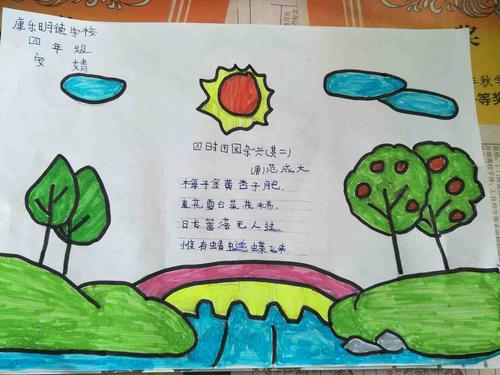 康乐明德学校
四年级
安婧
四时田园杂兴(其二)
范成大
梅子金黄杏子肥，
麦花雪白菜花稀。
日长篱落无人过，
惟有蜻蜓蝶飞来
奖
年秋学
等奖